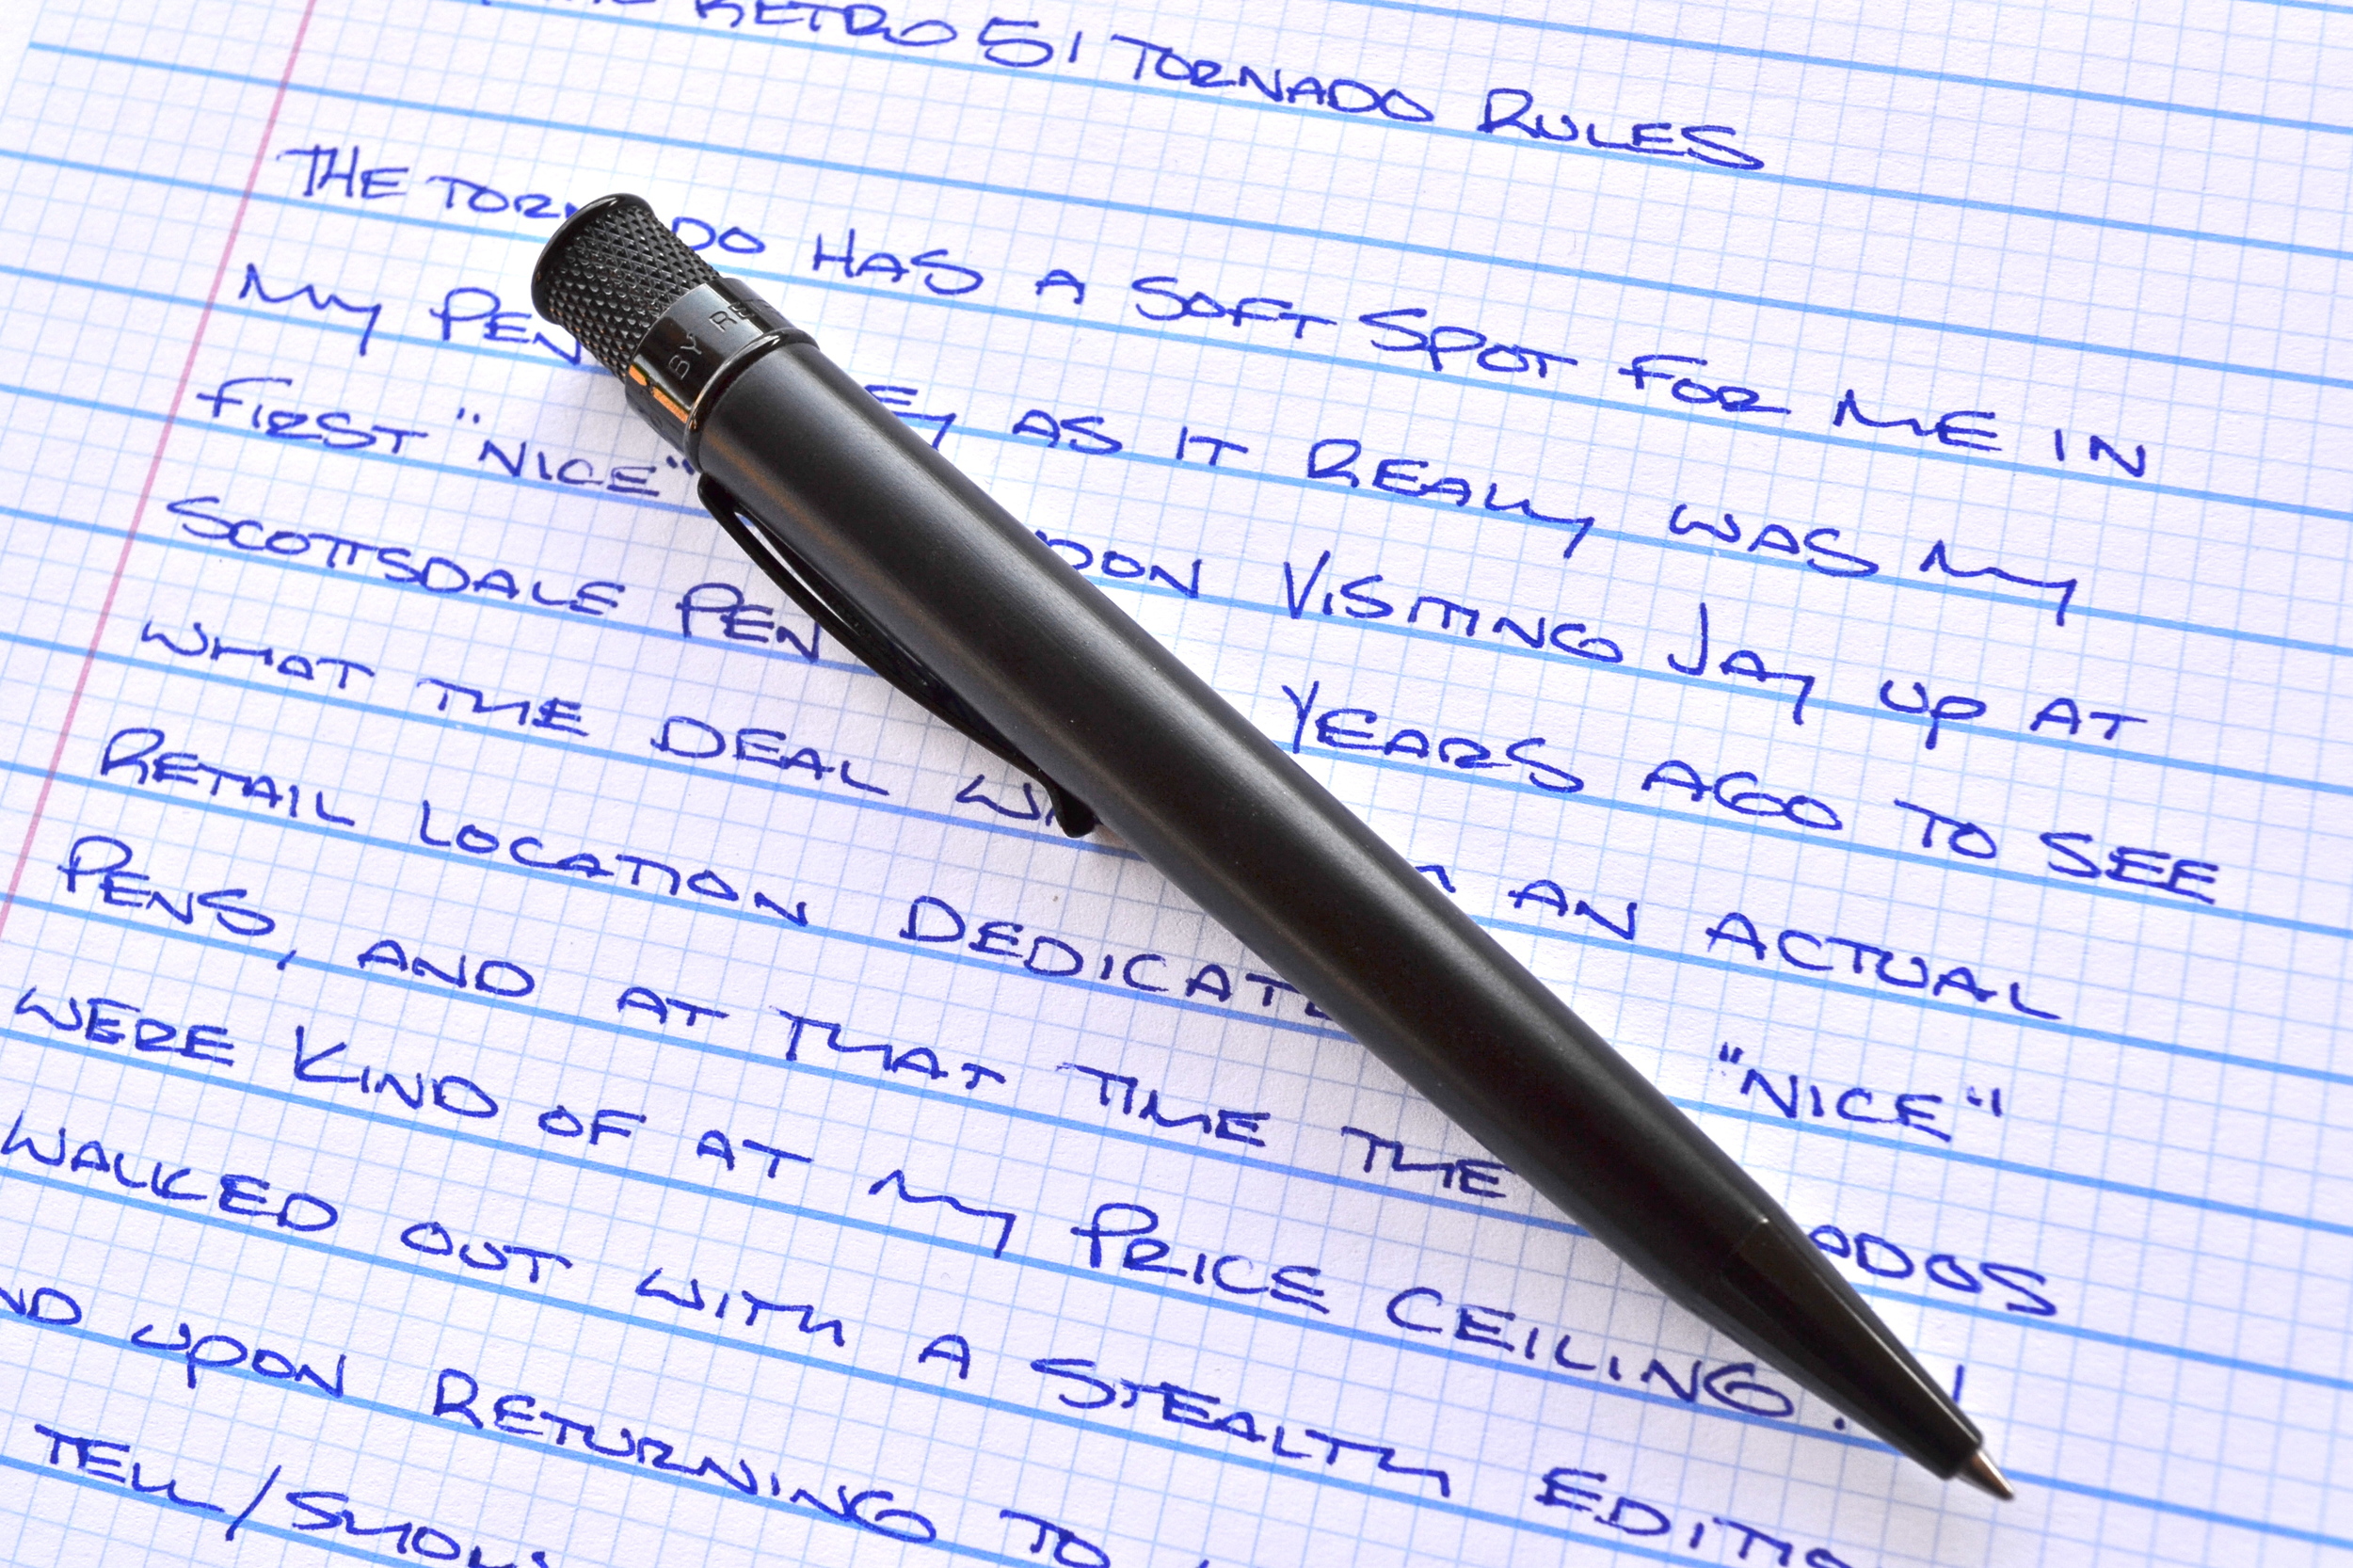 RETRO 51 TORNADO RULES
THE TORNADO HAS A SOFT SPOT FOR ME IN
MY PEN AS IT REALLY WAS MY
FIRST "NICE" VISITING JAY UP AT
SCOTTSDALE PEN YEARS AGO TO SEE
WHAT THE DEAL AN ACTUAL
RETAIL LOCATION DEDICATE "NICE"
PENS, AND AT THAT TIME THE ADOS
WERE KIND OF AT MY PRICE CEILING!
WALKED OUT WITH A STEALTH EDITIO
ND UPON RETURNING TO
TELL/SHOW
BY RE